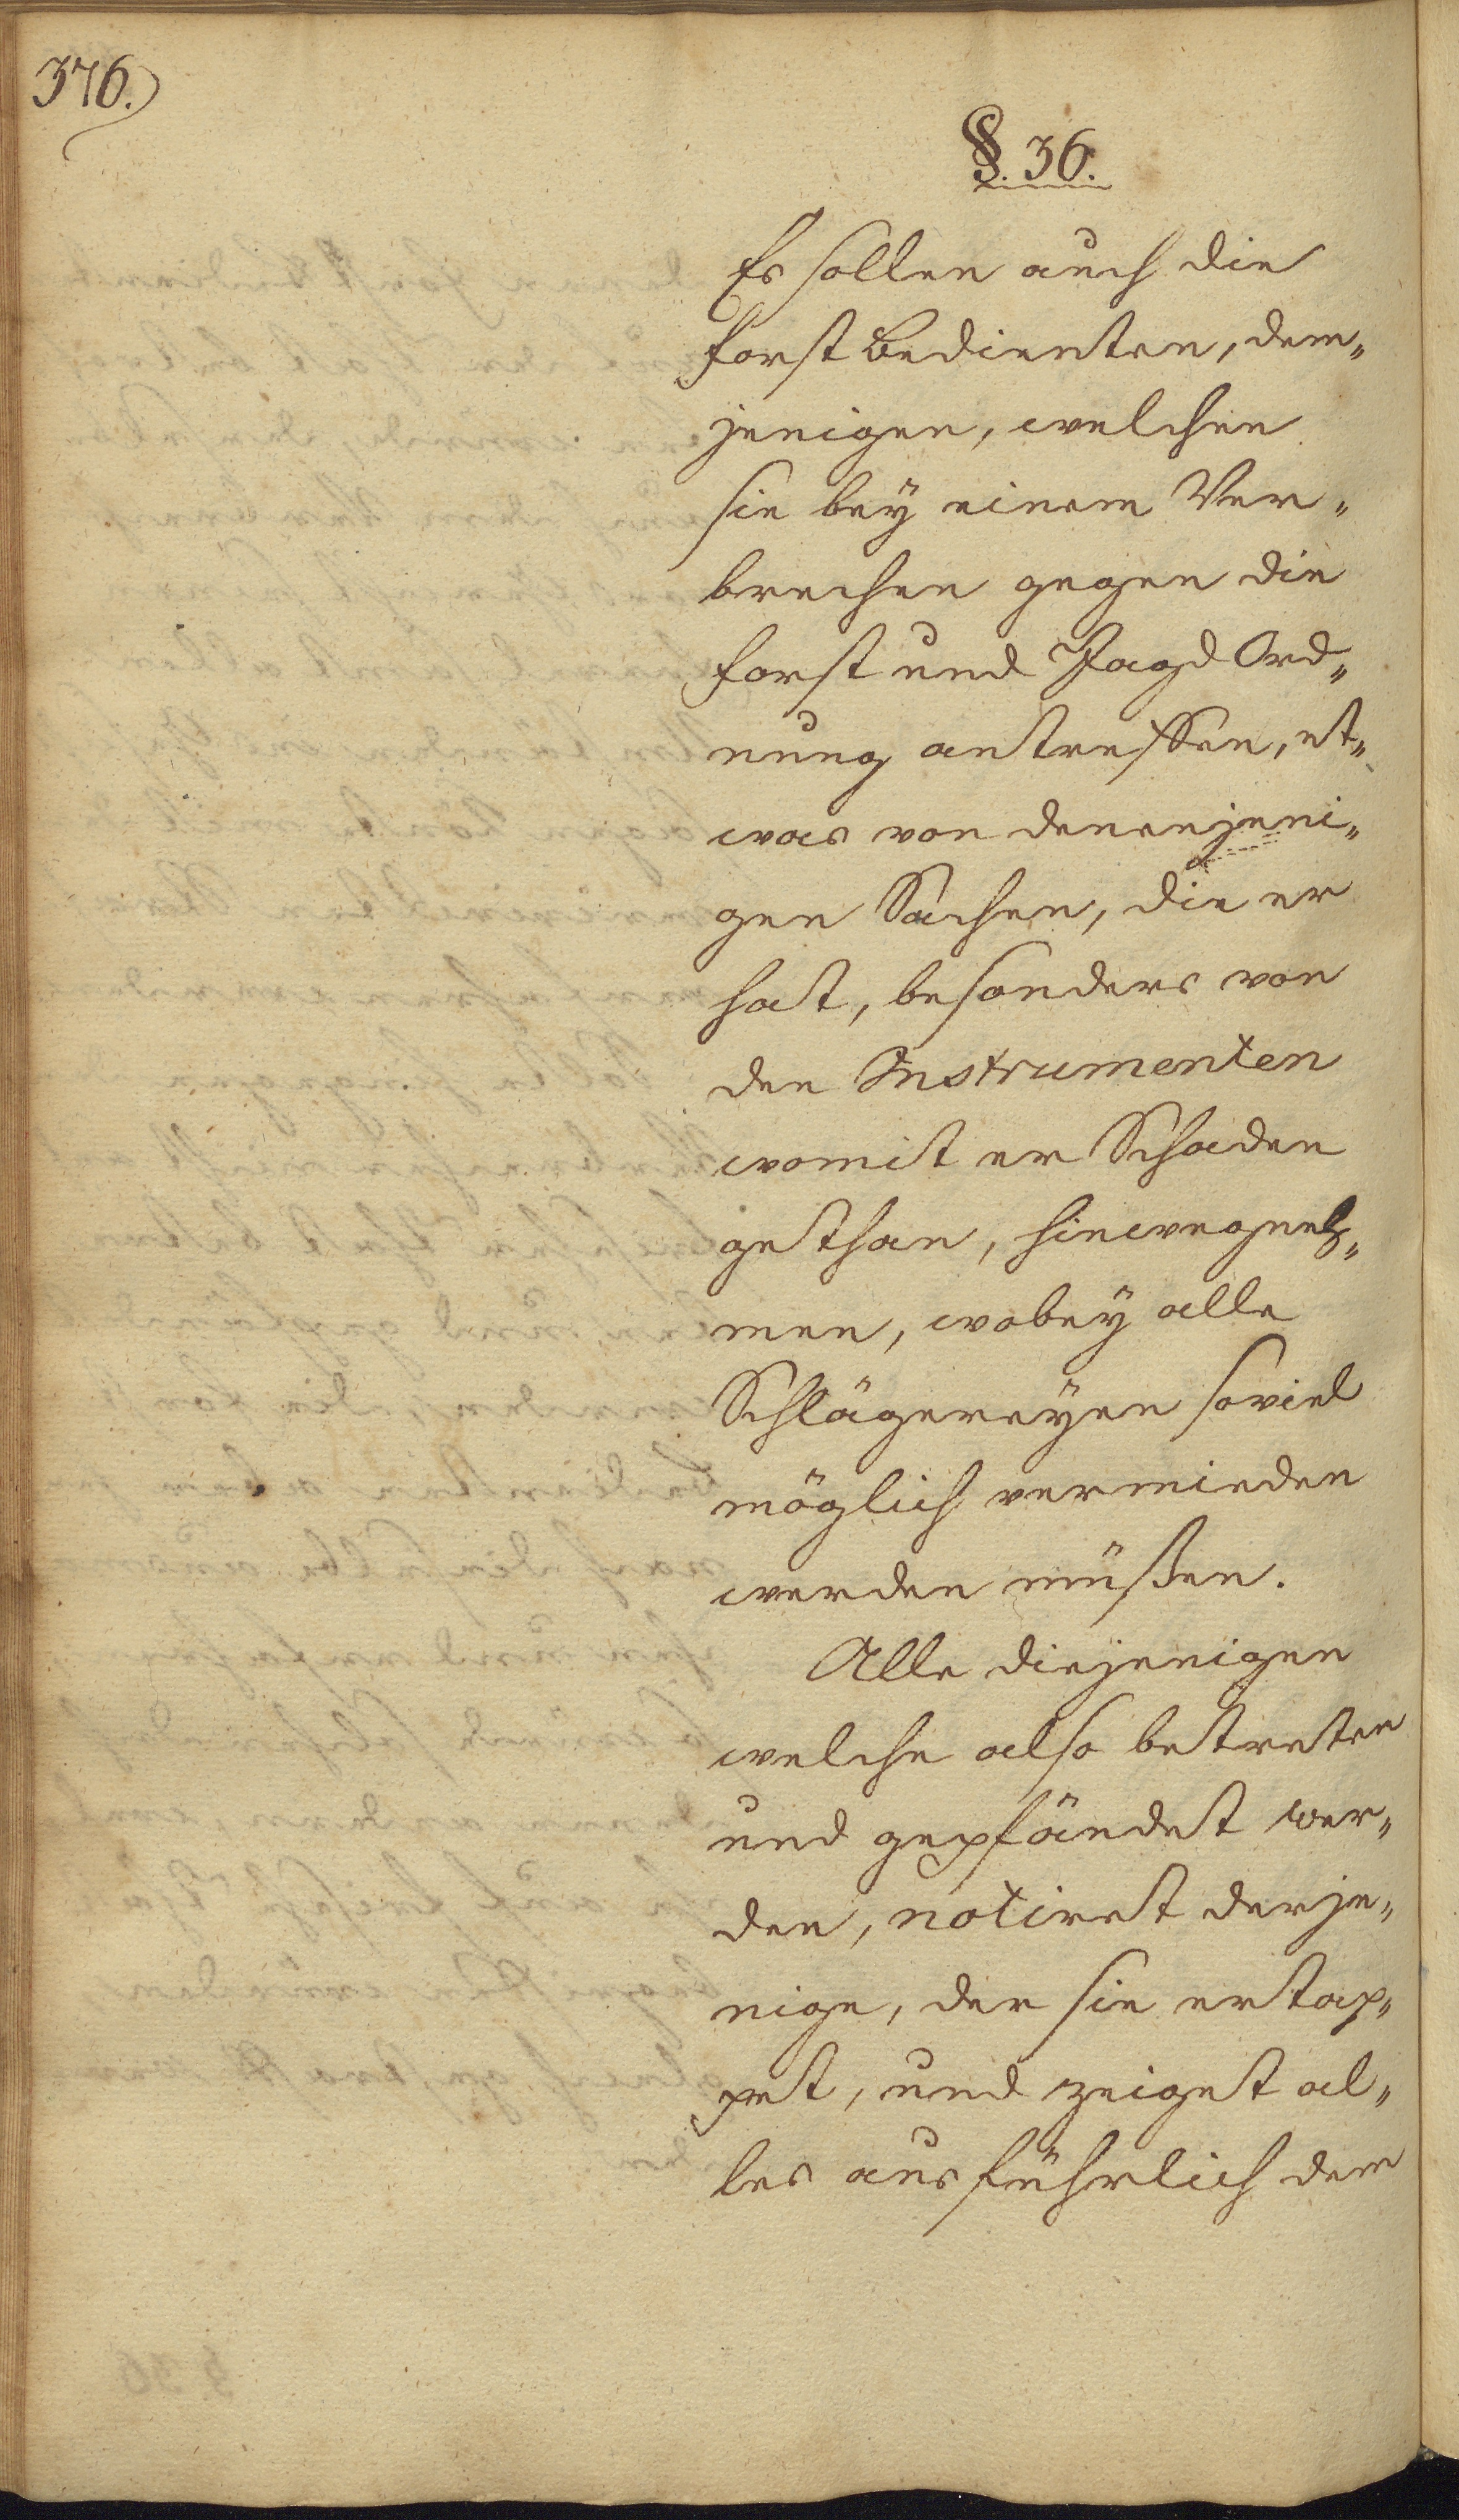 376.
§. 36.
Es sollen auch die
Forst Bedienten, dem„
jenigen, welchen
sie bey einem Ver„
brechen gegen die
Forst und Jagd Ord„
nung antreffen, et„
was von denenjeni„
gen Sachen, die er
hat, besonders von
den Instrumenten
womit er Schaden
gethan, hinwegneh„
men, wobey alle
Schlägereyen soviel
möglich vermieden
werden müßen.
Alle diejenigen
welche also betreten
und gepfändet wer„
den, notiret derje„
nige, der sie ertap„
pet, und zeiget al„
les ausführlich dem